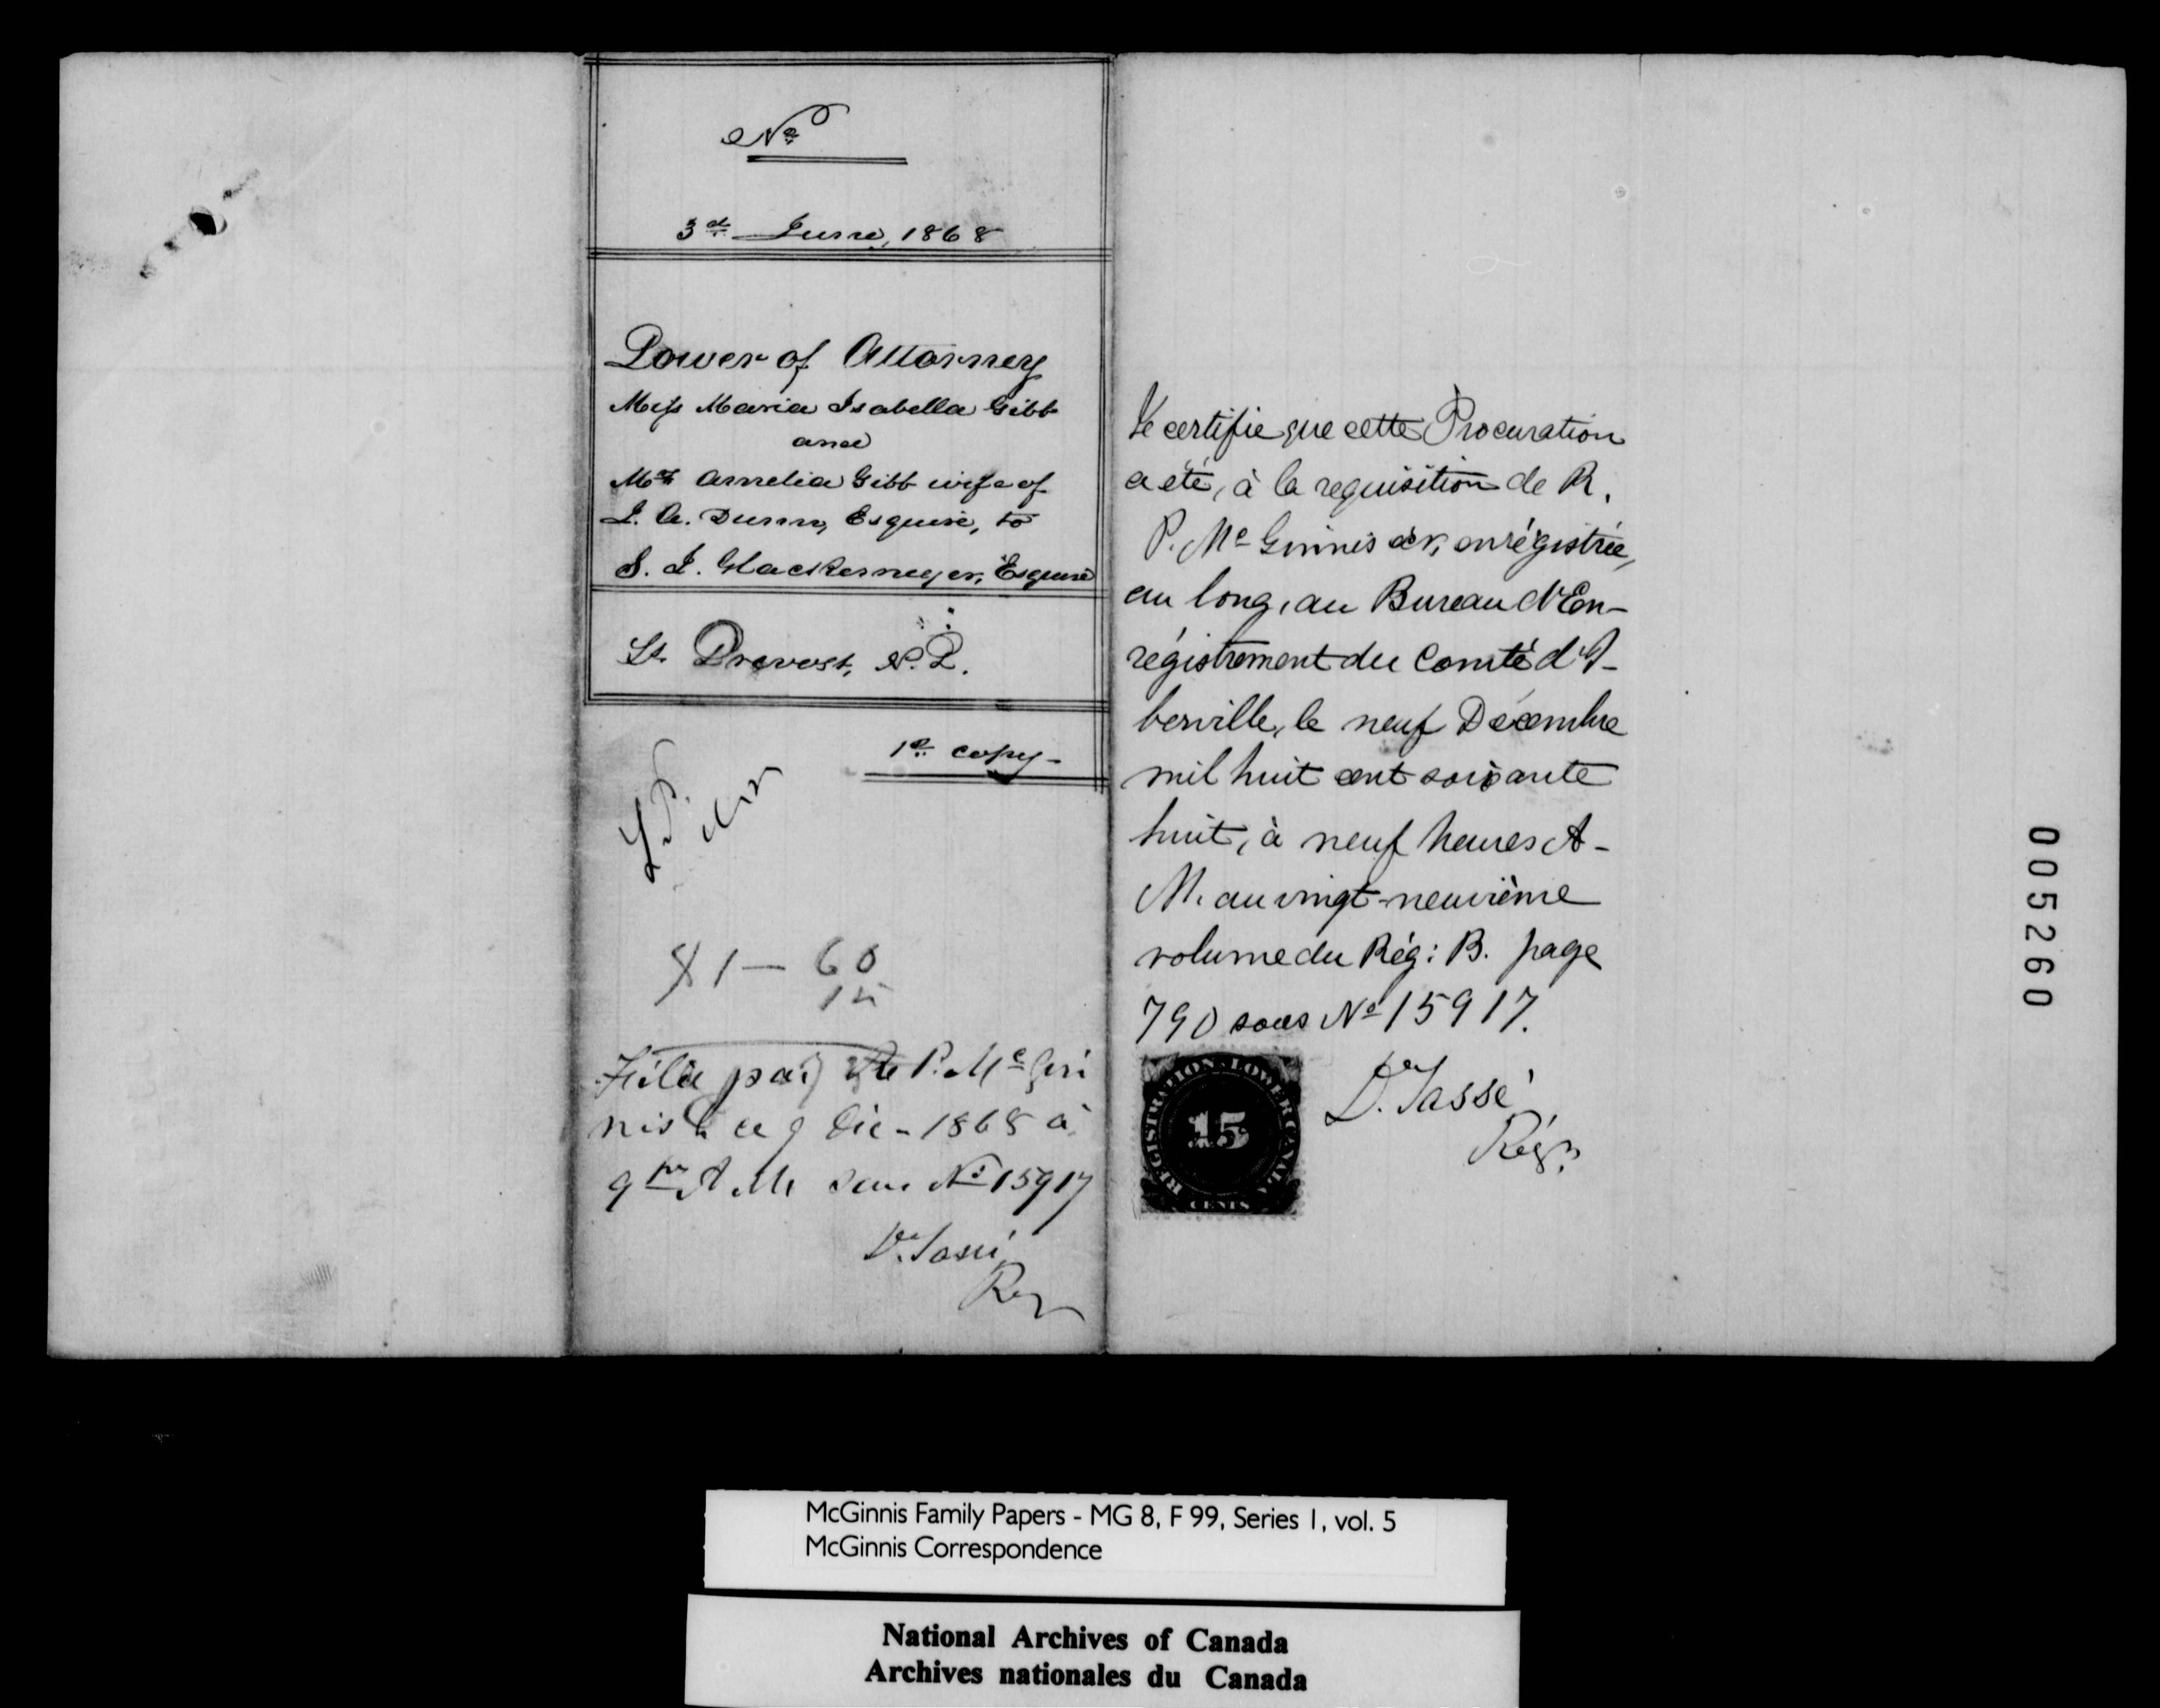 No
3d June, 1868
Power of Attorney
Miss Maria Isabella Gibb
and
Mrs Amelia Gibb wife of
J. A. Dunn, Esquire, to
S. J. Glackemeyer, Esquire
Lt Prevost, N.P.
1st copy -
L. P.
$1 - 60
15
Filée par R P. McGin
nis le 9 Déc - 1868 à
9 hrs A M. sous No 15917
D. Tassé
Reg
Je certifie que cette Procuration
a été, à la requisition de R.
P. McGinnis ecr, enrégistrée,
au long, au Bureau d'En-
régistrement du Comté d'I-
berville, le neuf Décembre
mil huit cent soixante
huit, à neuf heures A-
M. au vingt-neuvième
volume du Rég: B. page
790 sous No 15917.
D. Tassé
Régr
REGISTRATION LOWER CANADA
15
CENTS
005260
McGinnis Family Papers - MG 8, F 99, Series 1, vol. 5
McGinnis Correspondence
National Archives of Canada
Archives nationales du Canada